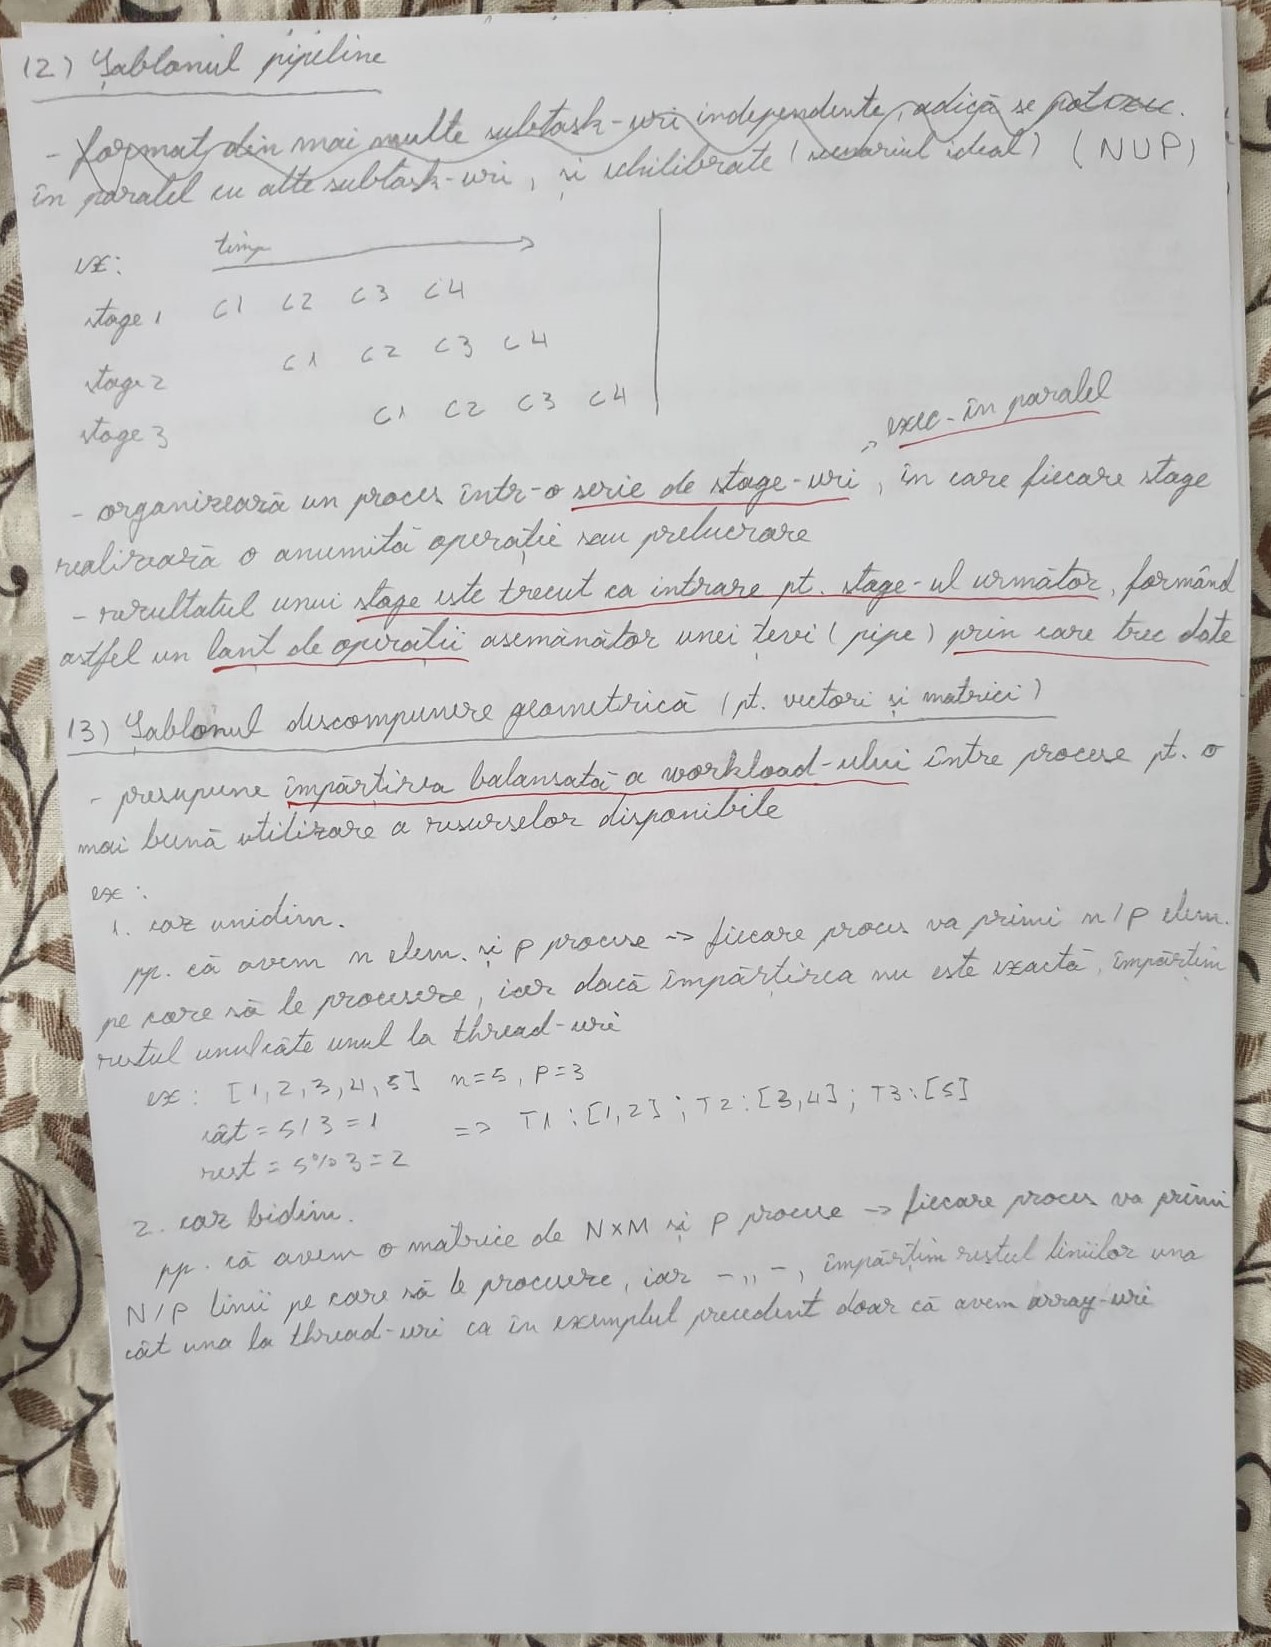 12) Șablonul pipeline
- format din mai multe subtask-uri independente, adică se pot exec.
în paralel cu alte subtask-uri, și echilibrate (scenariul ideal) (NUP)
ex: timp
stage 1 C1 C2 C3 C4
stage 2 C1 C2 C3 C4
stage 3 C1 C2 C3 C4
exec. în paralel
- organizează un proces într-o serie de stage-uri, în care fiecare stage
realizează o anumită operație sau prelucrare
- rezultatul unui stage este trecut ca intrare pt. stage-ul următor, formând
astfel un lanț de operații asemănător unei țevi (pipe) prin care trec date
13) Șablonul descompunere geometrică (pt. vectori și matrici)
- presupune împărțirea balansată a workload-ului între procese pt. o
mai bună utilizare a resurselor disponibile
ex:
1. caz unidim.
pp. că avem n elem. și p procese -> fiecare proces va primi n/p elem.
pe care să le proceseze, iar dacă împărțirea nu este exactă, împărțim
restul unul câte unul la thread-uri
ex: [1,2,3,4,5] n=5, p=3
cât = 5/3 = 1 => T1:[1,2]; T2:[3,4]; T3:[5]
rest = 5%3 = 2
2. caz bidim.
pp. că avem o matrice de NxM și p procese -> fiecare proces va primi
N/P linii pe care să le proceseze, iar -„-, împărțim restul liniilor una
cât una la thread-uri ca în exemplul precedent doar că avem array-uri